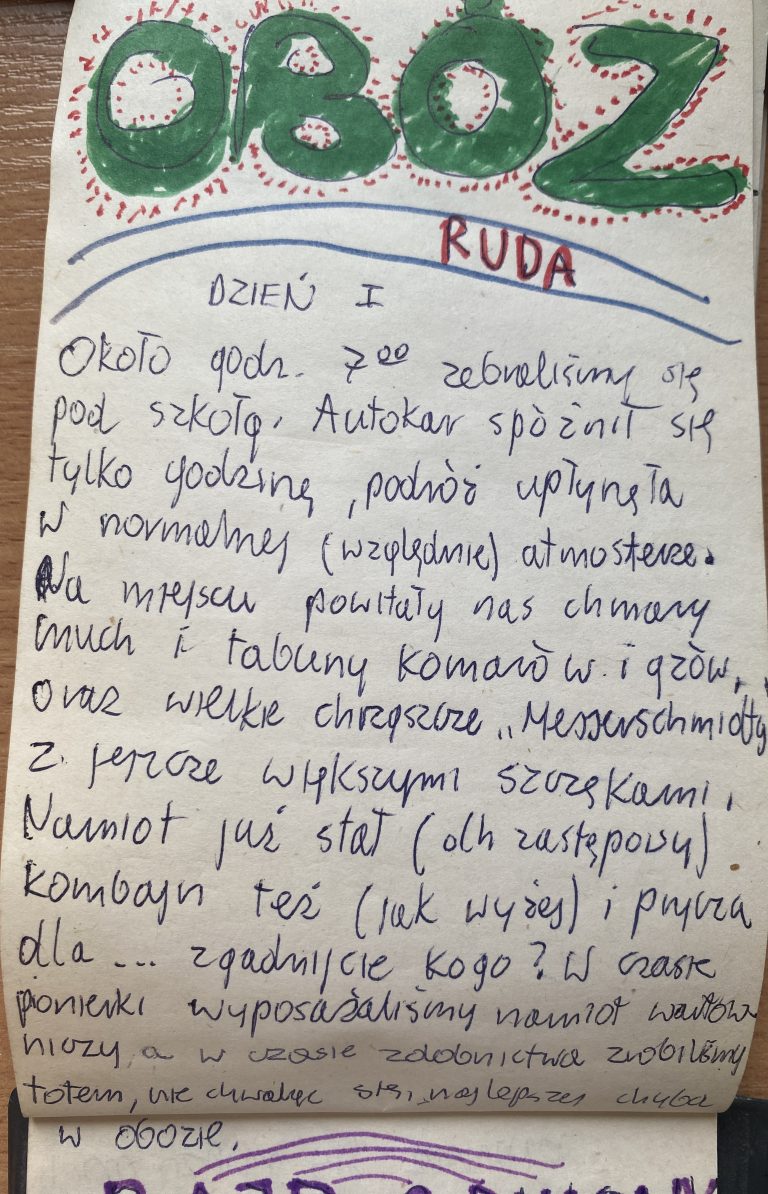 OBÓZ
RUDA
DZIEŃ I
Około godz. 7⁰⁰ zebraliśmy się
pod szkołą. Autokar spóźnił się
tylko godzinę, podróż upłynęła
w normalnej (względnie) atmosferze.
Na miejscu powitały nas chmary
much i tabuny komarów i gzów,
oraz wielkie chrząszcze „Messerschmidty
z jeszcze większymi szczękami.
Namiot już stał (olh zastępowy)
kombajn też (jak wyżej) i prycza
dla ... zgadnijcie kogo? W czasie
pionierki wyposażaliśmy namiot wartow-
niczy, a w czasie zdobnictwa zrobiliśmy
totem, nie chwaląc się, najlepszy chyba
w obozie.